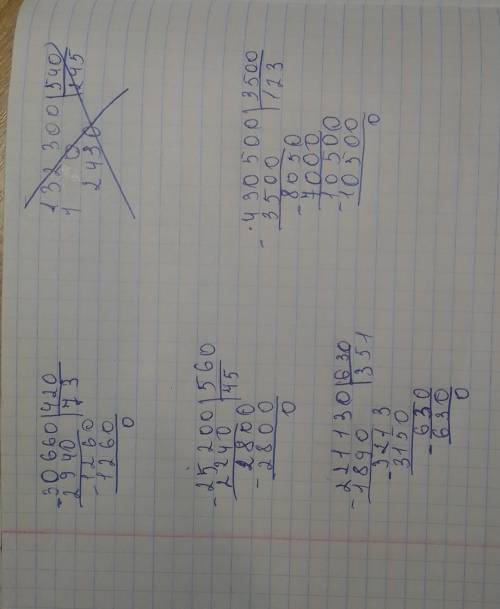 -30660|420
2940|73
1260
-1260
0
132300|540
245
2430
-25200|560
2240|45
2800
-2800
0
-430500|3500
3500|123
-8050
7000
10500
-10500
0
-221130|630
1890|351
-3213
3150
630
-630
0